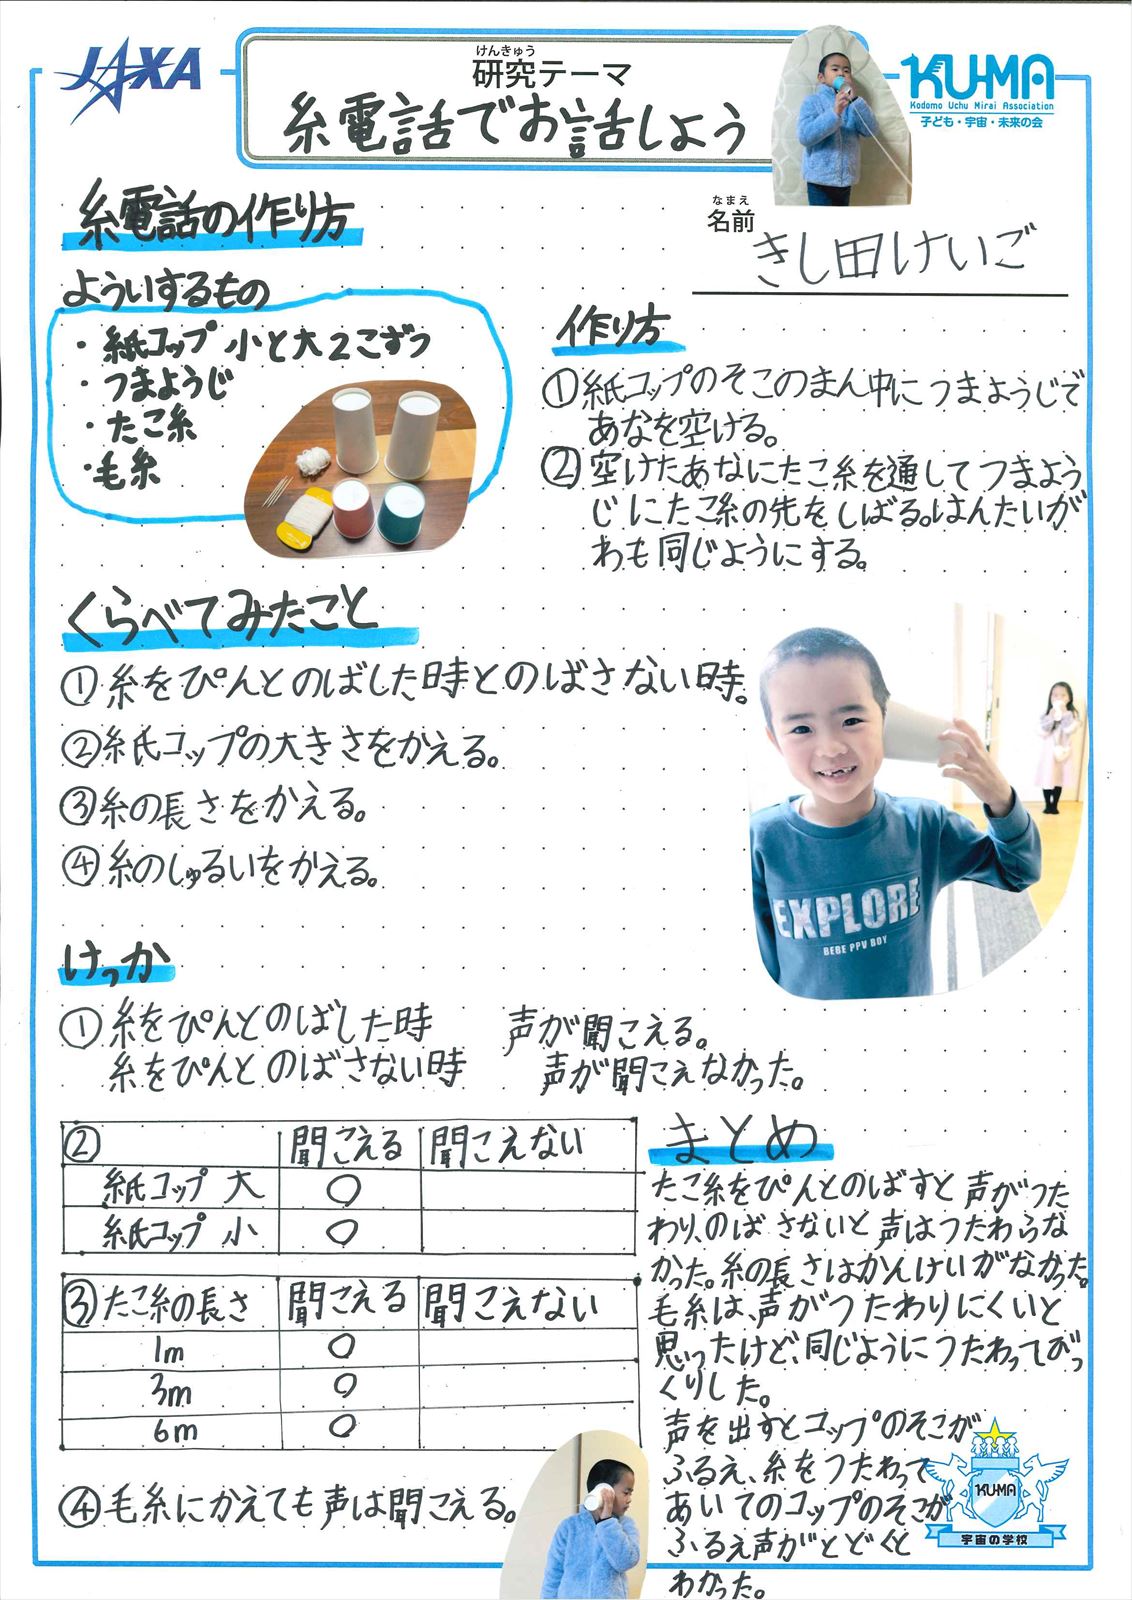 JAXA
けんきゅう
研究テーマ
糸電話でお話しよう
KUMA
Kodomo Uchu Mirai Association
子ども・宇宙・未来の会
なまえ
名前
きし田けいご
糸電話の作り方
よういするもの
・紙コップ 小と大2こずつ
・つまようじ
・たこ糸
・毛糸
作り方
①紙コップのそこのまん中につまようじで
あなを空ける。
②空けたあなにたこ糸を通してつまよう
じにたこ糸の先をしばる。はんたいが
わも同じようにする。
くらべてみたこと
①糸をぴんとのばした時とのばさない時。
②紙コップの大きさをかえる。
③糸の長さをかえる。
④糸のしゅるいをかえる。
EXPLORE
BEBE PPV BOY
けっか
①糸をぴんとのばした時 声が聞こえる。
糸をぴんとのばさない時 声が聞こえなかった。
② 聞こえる 聞こえない
紙コップ 大 ○
紙コップ 小 ○
③たこ糸の長さ 聞こえる 聞こえない
1m ○
3m ○
6m ○
④毛糸にかえても声は聞こえる。
まとめ
たこ糸をぴんとのばすと声がつた
わり、のばさないと声はつたわらな
かった。糸の長さはかんけいがなかった。
毛糸は、声がつたわりにくいと
思ったけど、同じようにつたわってびっ
くりした。
声を出すとコップのそこが
ふるえ、糸をつたわって
あいてのコップのそこが
ふるえ声がとどくと
わかった。
KUMA
宇宙の学校